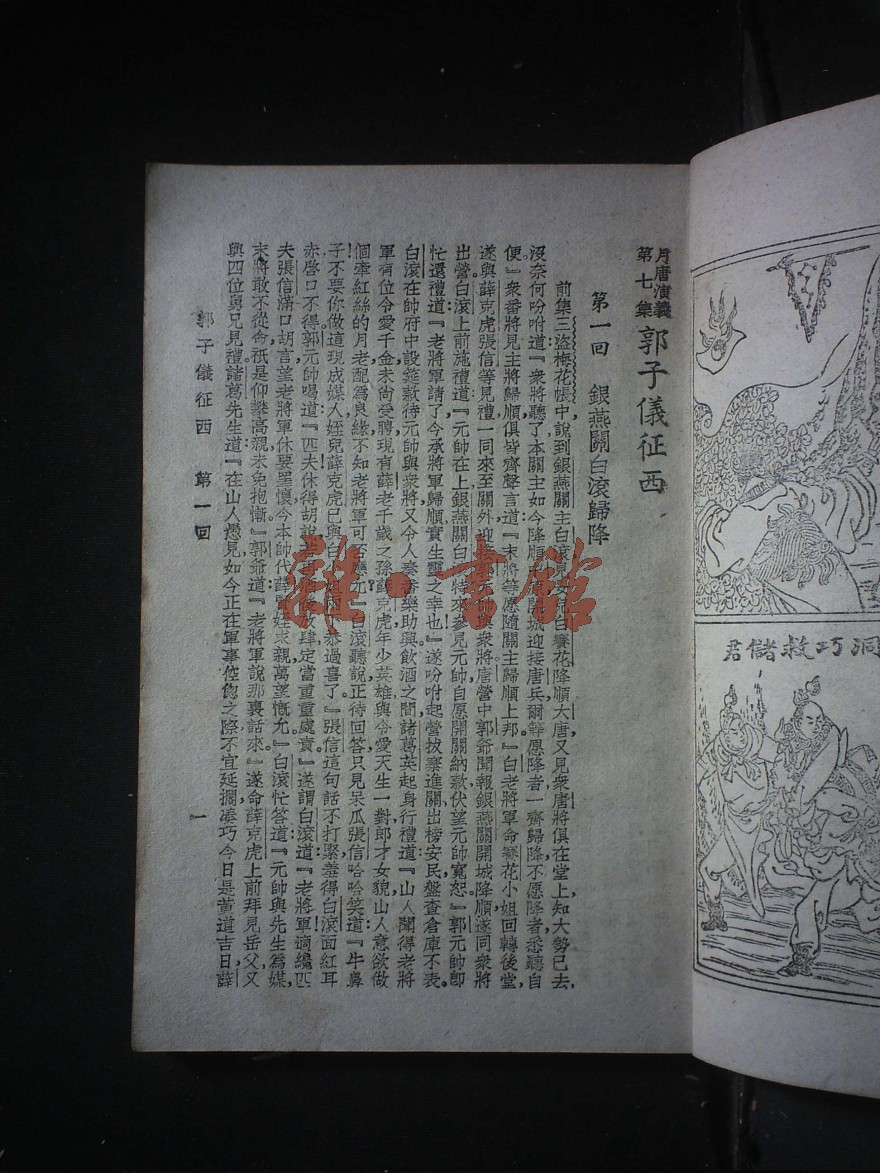 月唐演義
第七集
郭子儀征西
第一回　銀燕關白滾歸降
前集三盜梅花帳中說到銀燕關主白滾見女兒白賽花降順大唐又見衆唐將俱在堂上知大勢已去,
沒奈何吩咐道『衆將聽了本關主如今降順 開城迎接唐兵爾等愿降者一齊歸降不愿降者悉聽自
便』衆番將見主將歸順俱皆齊聲言道『末將等愿隨關主歸順上邦』白老將軍命賽花小姐回轉後堂,
遂與薛克虎張信等見禮一同來至關外迎接 衆將唐營中郭爺聞報銀燕關開城降順遂同衆將
出營白滾上前施禮道『元帥在上銀燕關白 特來參見元帥自愿開關納欵伏望元帥寬恕』郭元帥卽
忙還禮道『老將軍請了今承將軍歸順實生靈之幸也』遂吩咐起營拔寨進關出榜安民盤查倉庫不表.
白滾在帥府中設筵欵待元帥與衆將又令人奏 樂助興飲酒之間諸葛英起身行禮道『山人聞得老將
軍有位令愛千金未尙受聘現有薛老千歲之孫薛克虎年少英雄與令愛天生一對郎才女貌山人意欲做
個牽紅絲的月老配爲良緣不知老將軍可否應允』白滾聽說正待回答只見呆瓜張信哈哈笑道『牛鼻
子不要你做這現成媒人姪兒薛克虎已與白 恭過喜了』張信這句話不打緊羞得白滾面紅耳
赤啓口不得郭元帥喝道『匹夫休得胡說 放肆定當重重處責』遂謂白滾道『老將軍適纔匹
夫張信滿口胡言望老將軍休要罣懷今本帥代薛 姪求親萬望慨允』白滾忙答道『元帥與先生爲媒,
末將敢不從命祇是仰攀高親未免抱慚』郭爺道『老將軍說那裏話來』遂命薛克虎上前拜見岳父又
與四位舅兄見禮諸葛先生道『在山人愚見如今正在軍事倥傯之際不宜延擱湊巧今日是黃道吉日薛
郭子儀征西　第一回
一
洞巧救儲君
雜·書館